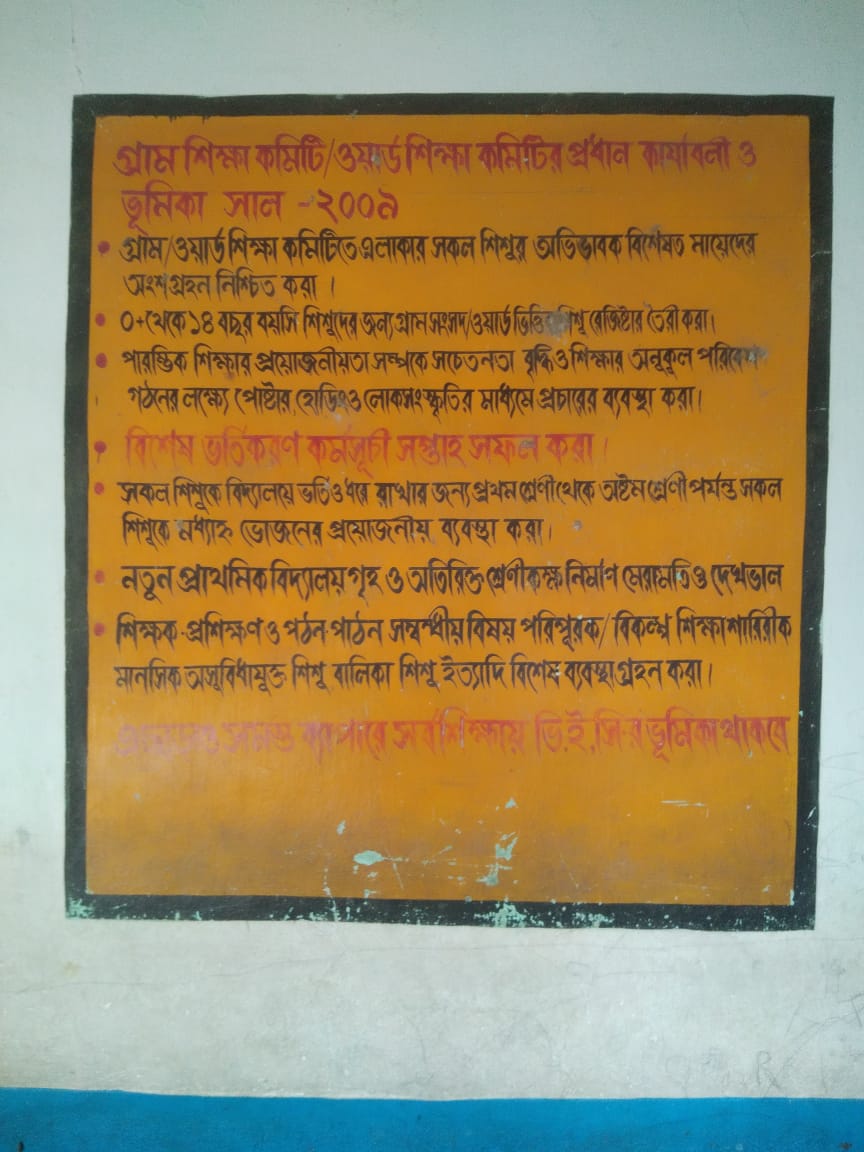 গ্রাম শিক্ষা কমিটি/ওয়ার্ড শিক্ষা কমিটির প্রধান কার্যাবলী ও
ভূমিকা সাল - ২০০৯
• গ্রাম/ওয়ার্ড শিক্ষা কমিটিতে এলাকার সকল শিশুর অভিভাবক বিশেষত মায়েদের
অংশগ্রহন নিশ্চিত করা ।
• ০+থেকে ১৪ বছর বয়সি শিশুদের জন্য গ্রাম সংসদ/ওয়ার্ড ভিত্তিক শিশু রেজিষ্টার তৈরী করা।
• পারম্ভিক শিক্ষার প্রয়োজনীয়তা সম্পকে সচেতনতা বৃদ্ধি ও শিক্ষার অনুকূল পরিবেশ
গঠনের লক্ষ্যে পোষ্টার, হোডিং ও লোকসংস্কৃতির মাধ্যমে প্রচারের ব্যবস্থা করা।
• বিশেষ ভর্তিকরণ কর্মসূচী সপ্তাহ সফল করা।
• সকল শিশুকে বিদ্যালয়ে ভর্তি ও ধরে রাখার জন্য প্রথম শ্রেণী থেকে অষ্টম শ্রেণী পর্যন্ত সকল
শিশুকে মধ্যাহ্ন ভোজনের প্রয়োজনীয় ব্যবস্থা করা।
• নতুন প্রাথমিক বিদ্যালয় গৃহ ও অতিরিক্ত শ্রেণীকক্ষ নির্মাণ মেরামতি ও দেখভাল
• শিক্ষক-প্রশিক্ষণ ও পঠন-পাঠন সম্বন্ধীয় বিষয় পরিপূরক/ বিকল্প শিক্ষা শারিরীক
মানসিক অসুবিধাযুক্ত শিশু বালিকা শিশু ইত্যাদি বিশেষ ব্যবস্থা গ্রহন করা।
সমস্ত ব্যাপারে সর্বশিক্ষায় ভি.ই.সি-র ভূমিকা থাকবে